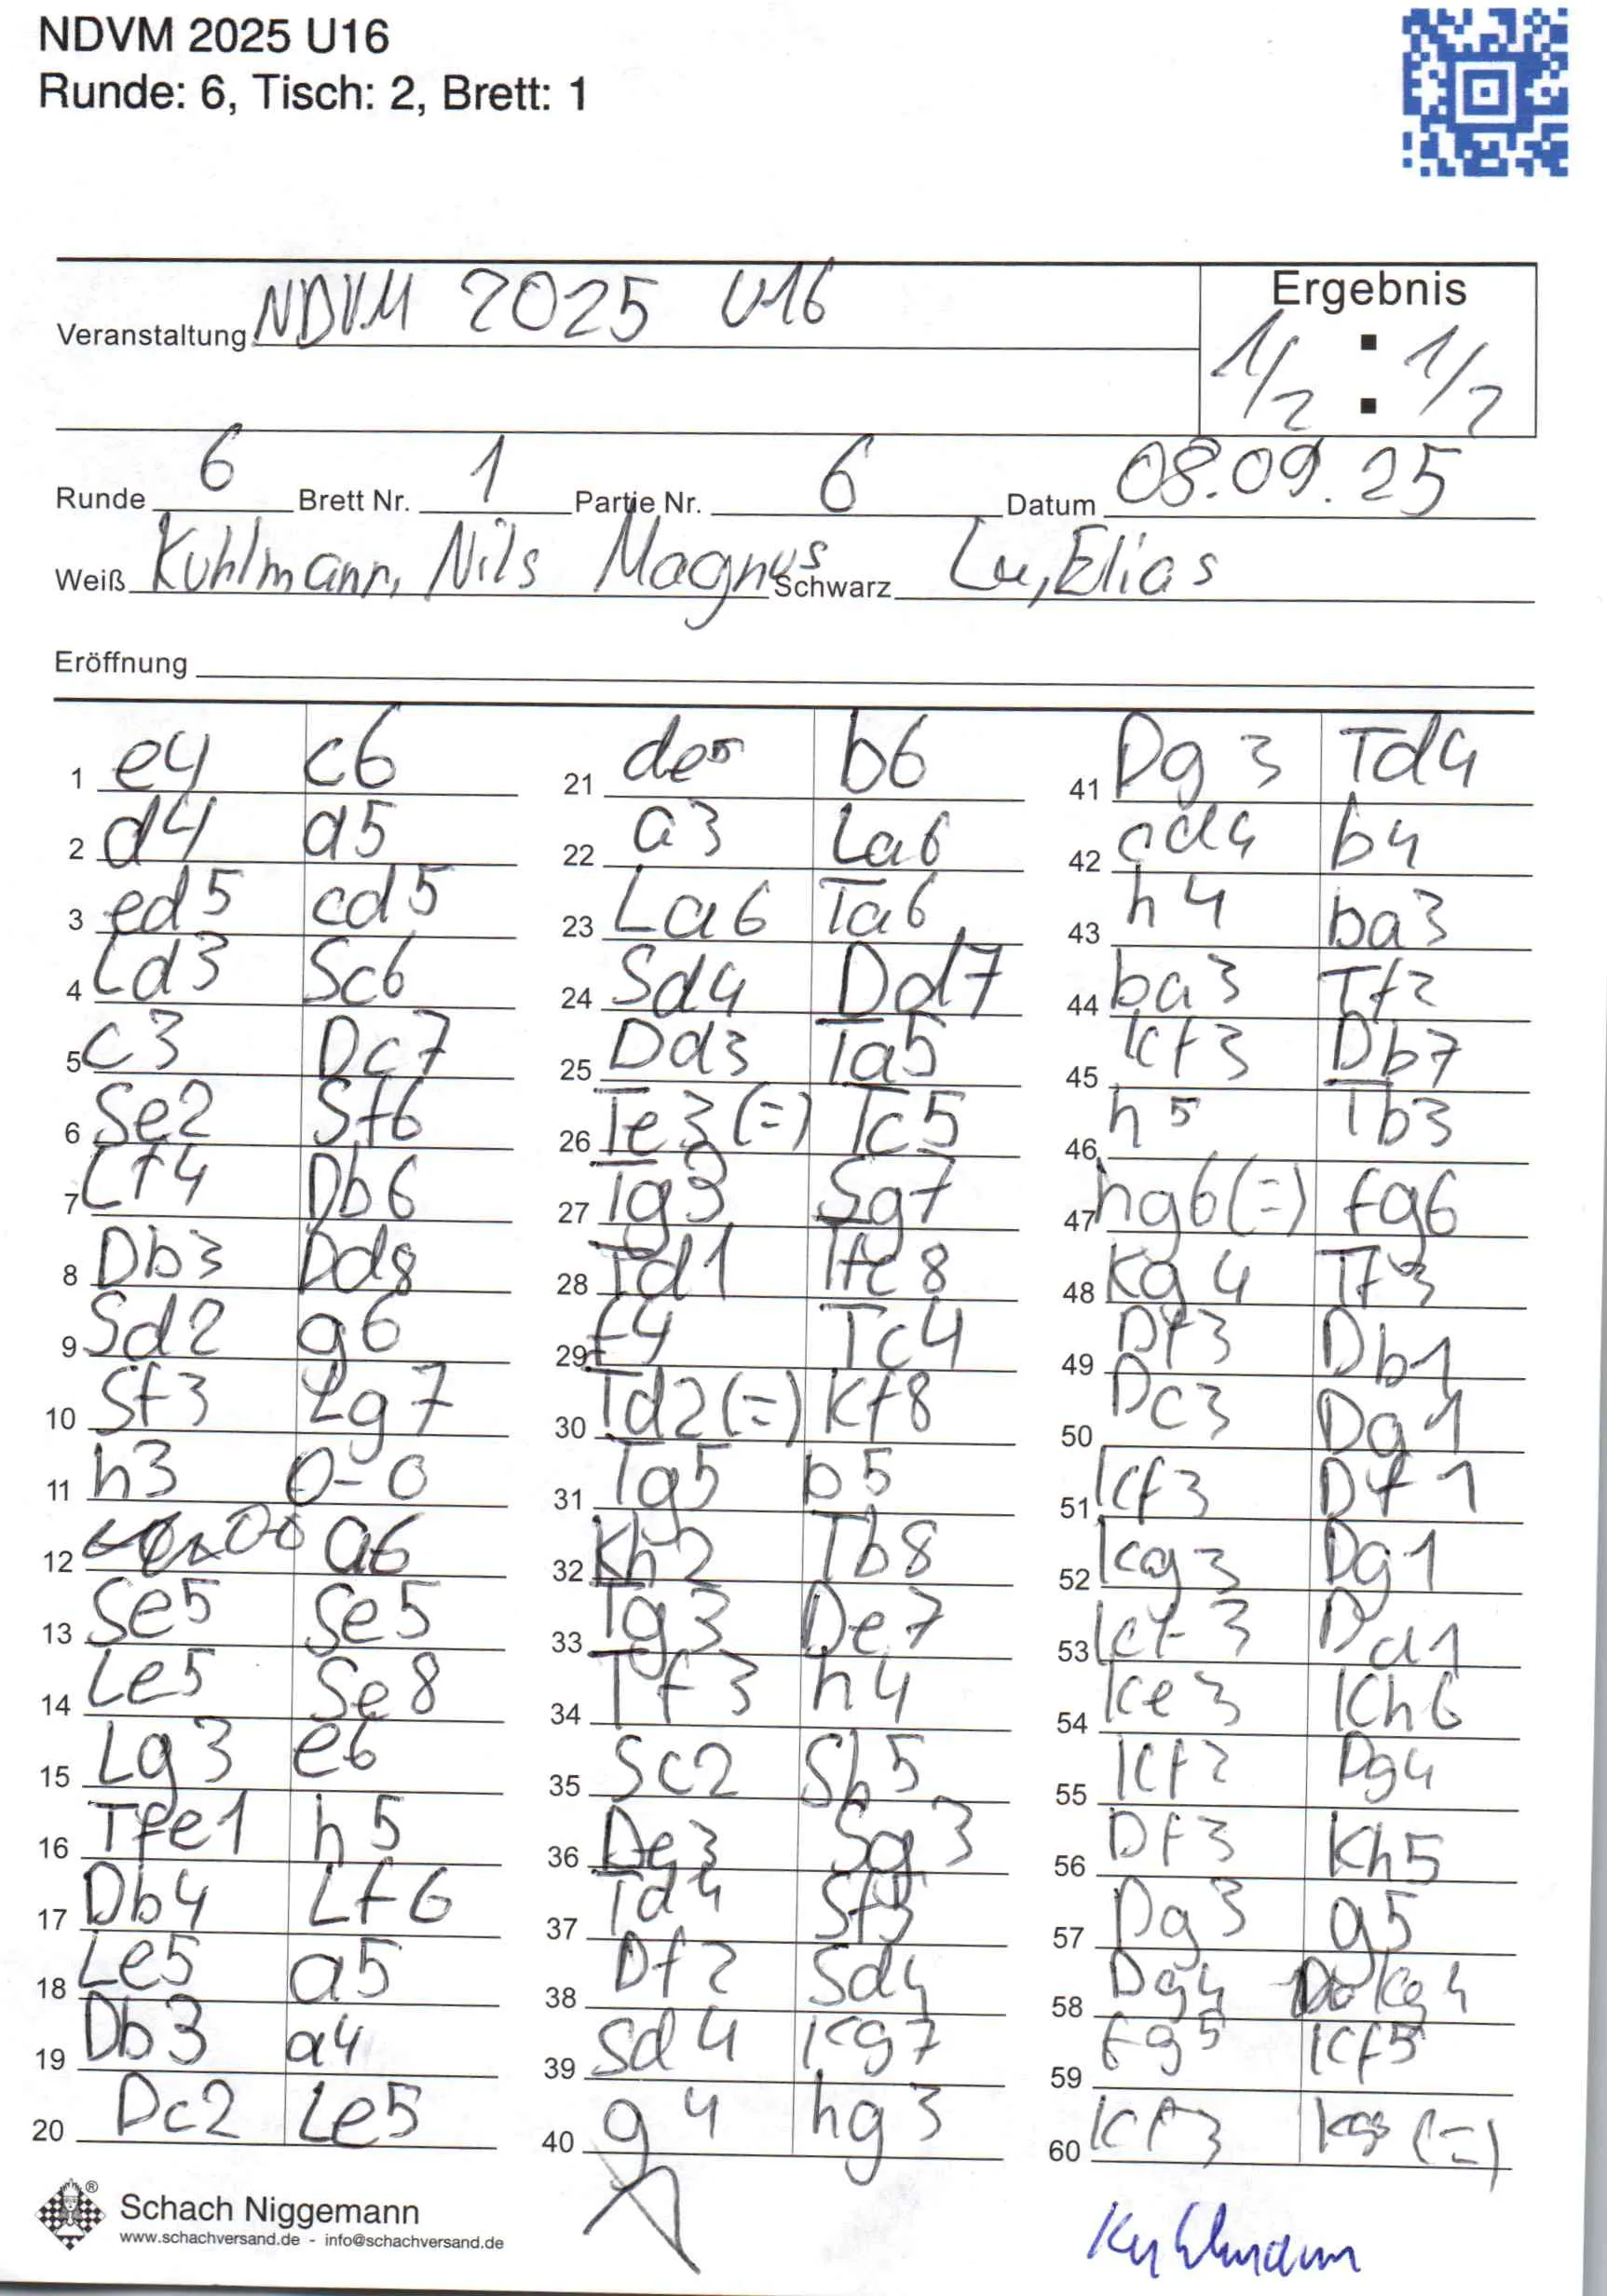 NDVM 2025 U16
Runde: 6, Tisch: 2, Brett: 1
Veranstaltung NDVM 2025 U16
Ergebnis
1/2 : 1/2
Runde 6 Brett Nr. 1 Partie Nr. 6 Datum 08.09.25
Weiß Kuhlmann, Nils Magnus Schwarz Lu, Elias
Eröffnung
1 e4 c6
2 d4 d5
3 ed5 cd5
4 Ld3 Sc6
5 c3 Dc7
6 Se2 Sf6
7 Lf4 Db6
8 Db3 Dd8
9 Sd2 g6
10 Sf3 Lg7
11 h3 0-0
12 00 a6
13 Se5 Se5
14 Le5 Se8
15 Lg3 e6
16 Tfe1 h5
17 Db4 Lf6
18 Le5 a5
19 Db3 a4
20 Dc2 Le5
21 de5 b6
22 a3 La6
23 La6 Ta6
24 Sd4 Dd7
25 Dd3 Ta5
26 Te3 (=) Tc5
27 Tg3 Sg7
28 Td1 Tfc8
29 f4 Tc4
30 Td2 (=) Kf8
31 Tg5 b5
32 Kh2 Tb8
33 Tg3 De7
34 Tf3 h4
35 Sc2 Sh5
36 De3 Sg3
37 Td4 Sf5
38 Df2 Sd4
39 Sd4 Kg7
40 g4 hg3
41 Dg3 Td4
42 cd4 b4
43 h4 ba3
44 ba3 Tf2
45 Kf3 Db7
46 h5 Tb3
47 hg6 (=) fg6
48 Kg4 Tf3
49 Df3 Db1
50 Dc3 Dg1
51 Kf3 Df1
52 Kg3 Dg1
53 Kf3 Da1
54 Ke3 Kh6
55 Kf2 Dg4
56 Df3 Kh5
57 Dg3 g5
58 Dg4 Kg4
59 fg5 Kf5
60 Kf3 (=)
Schach Niggemann
www.schachversand.de - info@schachversand.de
Kuhlmann